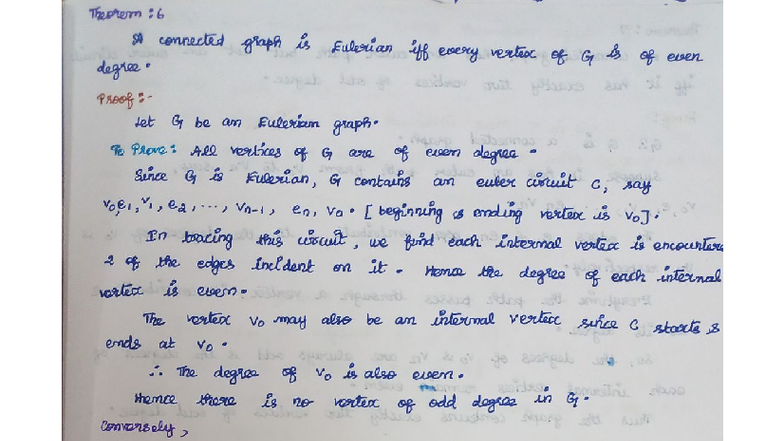 Theorem : 6
A connected graph is Eulerian iff every vertex of G is of even
degree.
Proof :-
Let G be an Eulerian graph.
To Prove : All vertices of G are of even degree.
Since G is Eulerian, G contains an euler circuit C, say
v0,e1,v1,e2,...,vn-1, en, v0. [beginning & ending vertex is v0].
In tracing this circuit, we find each internal vertex is encountere
2 of the edges incident on it. Hence the degree of each internal
vertex is even.
The vertex v0 may also be an internal vertex since C starts &
ends at v0.
∴ The degree of v0 is also even.
Hence there is no vertex of odd degree in G.
Conversely,